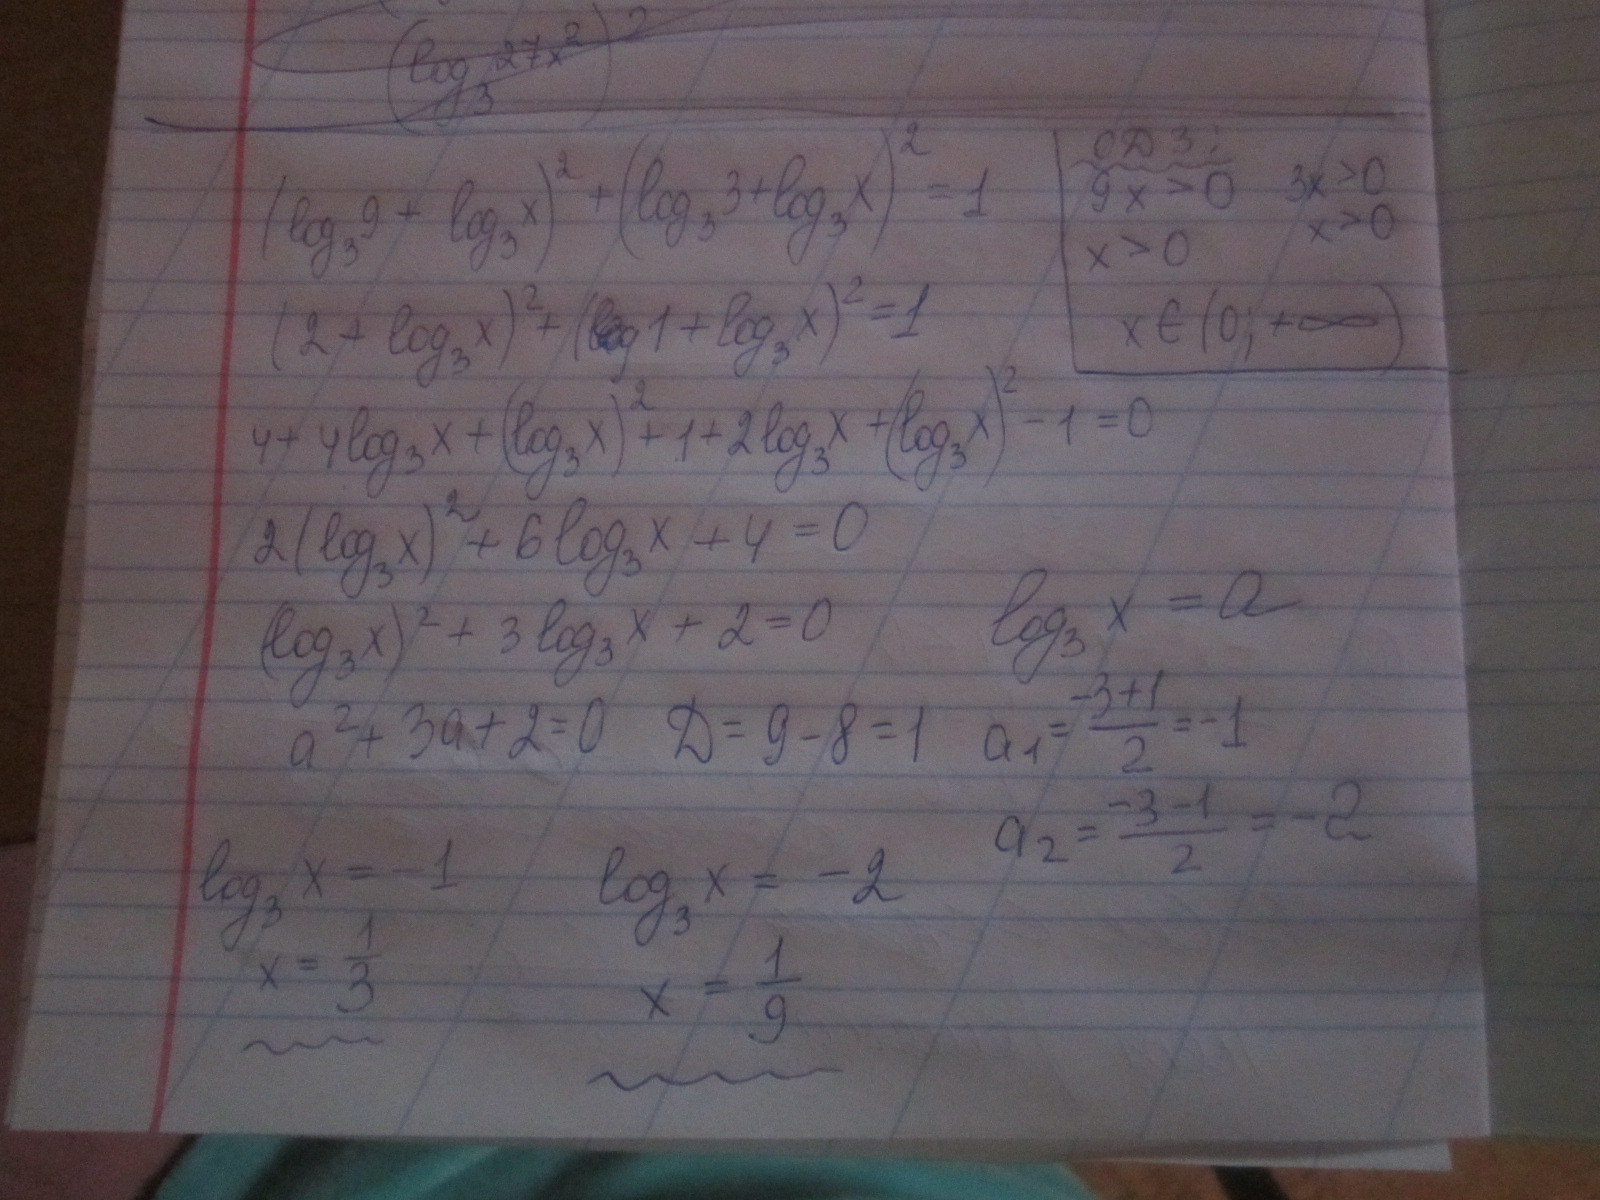 (log₃ 27x²)²
(log₃9 + log₃x)² + (log₃3 + log₃x)² = 1
ОДЗ:
9x > 0 3x > 0
x > 0 x > 0
x ∈ (0; +∞)
(2 + log₃x)² + (1 + log₃x)² = 1
4 + 4log₃x + (log₃x)² + 1 + 2log₃x + (log₃x)² - 1 = 0
2(log₃x)² + 6log₃x + 4 = 0
(log₃x)² + 3log₃x + 2 = 0 log₃x = a
a² + 3a + 2 = 0 D = 9 - 8 = 1 a₁ = (-3+1)/2 = -1
a₂ = (-3-1)/2 = -2
log₃x = -1 log₃x = -2
x = 1/3 x = 1/9